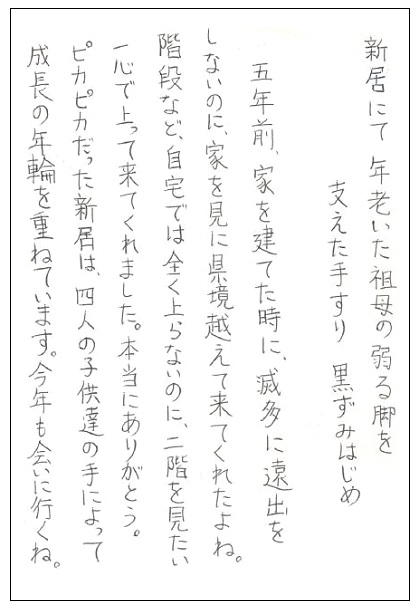 新居にて 年老いた祖母の弱る脚を
支えた手すり 黒ずみはじめ
五年前、家を建てた時に、滅多に遠出を
しないのに、家を見に県境越えて来てくれたよね。
階段など、自宅では全く上らないのに、二階を見たい
一心で上って来てくれました。本当にありがとう。
ピカピカだった新居は、四人の子供達の手によって
成長の年輪を重ねています。今年も会いに行くね。